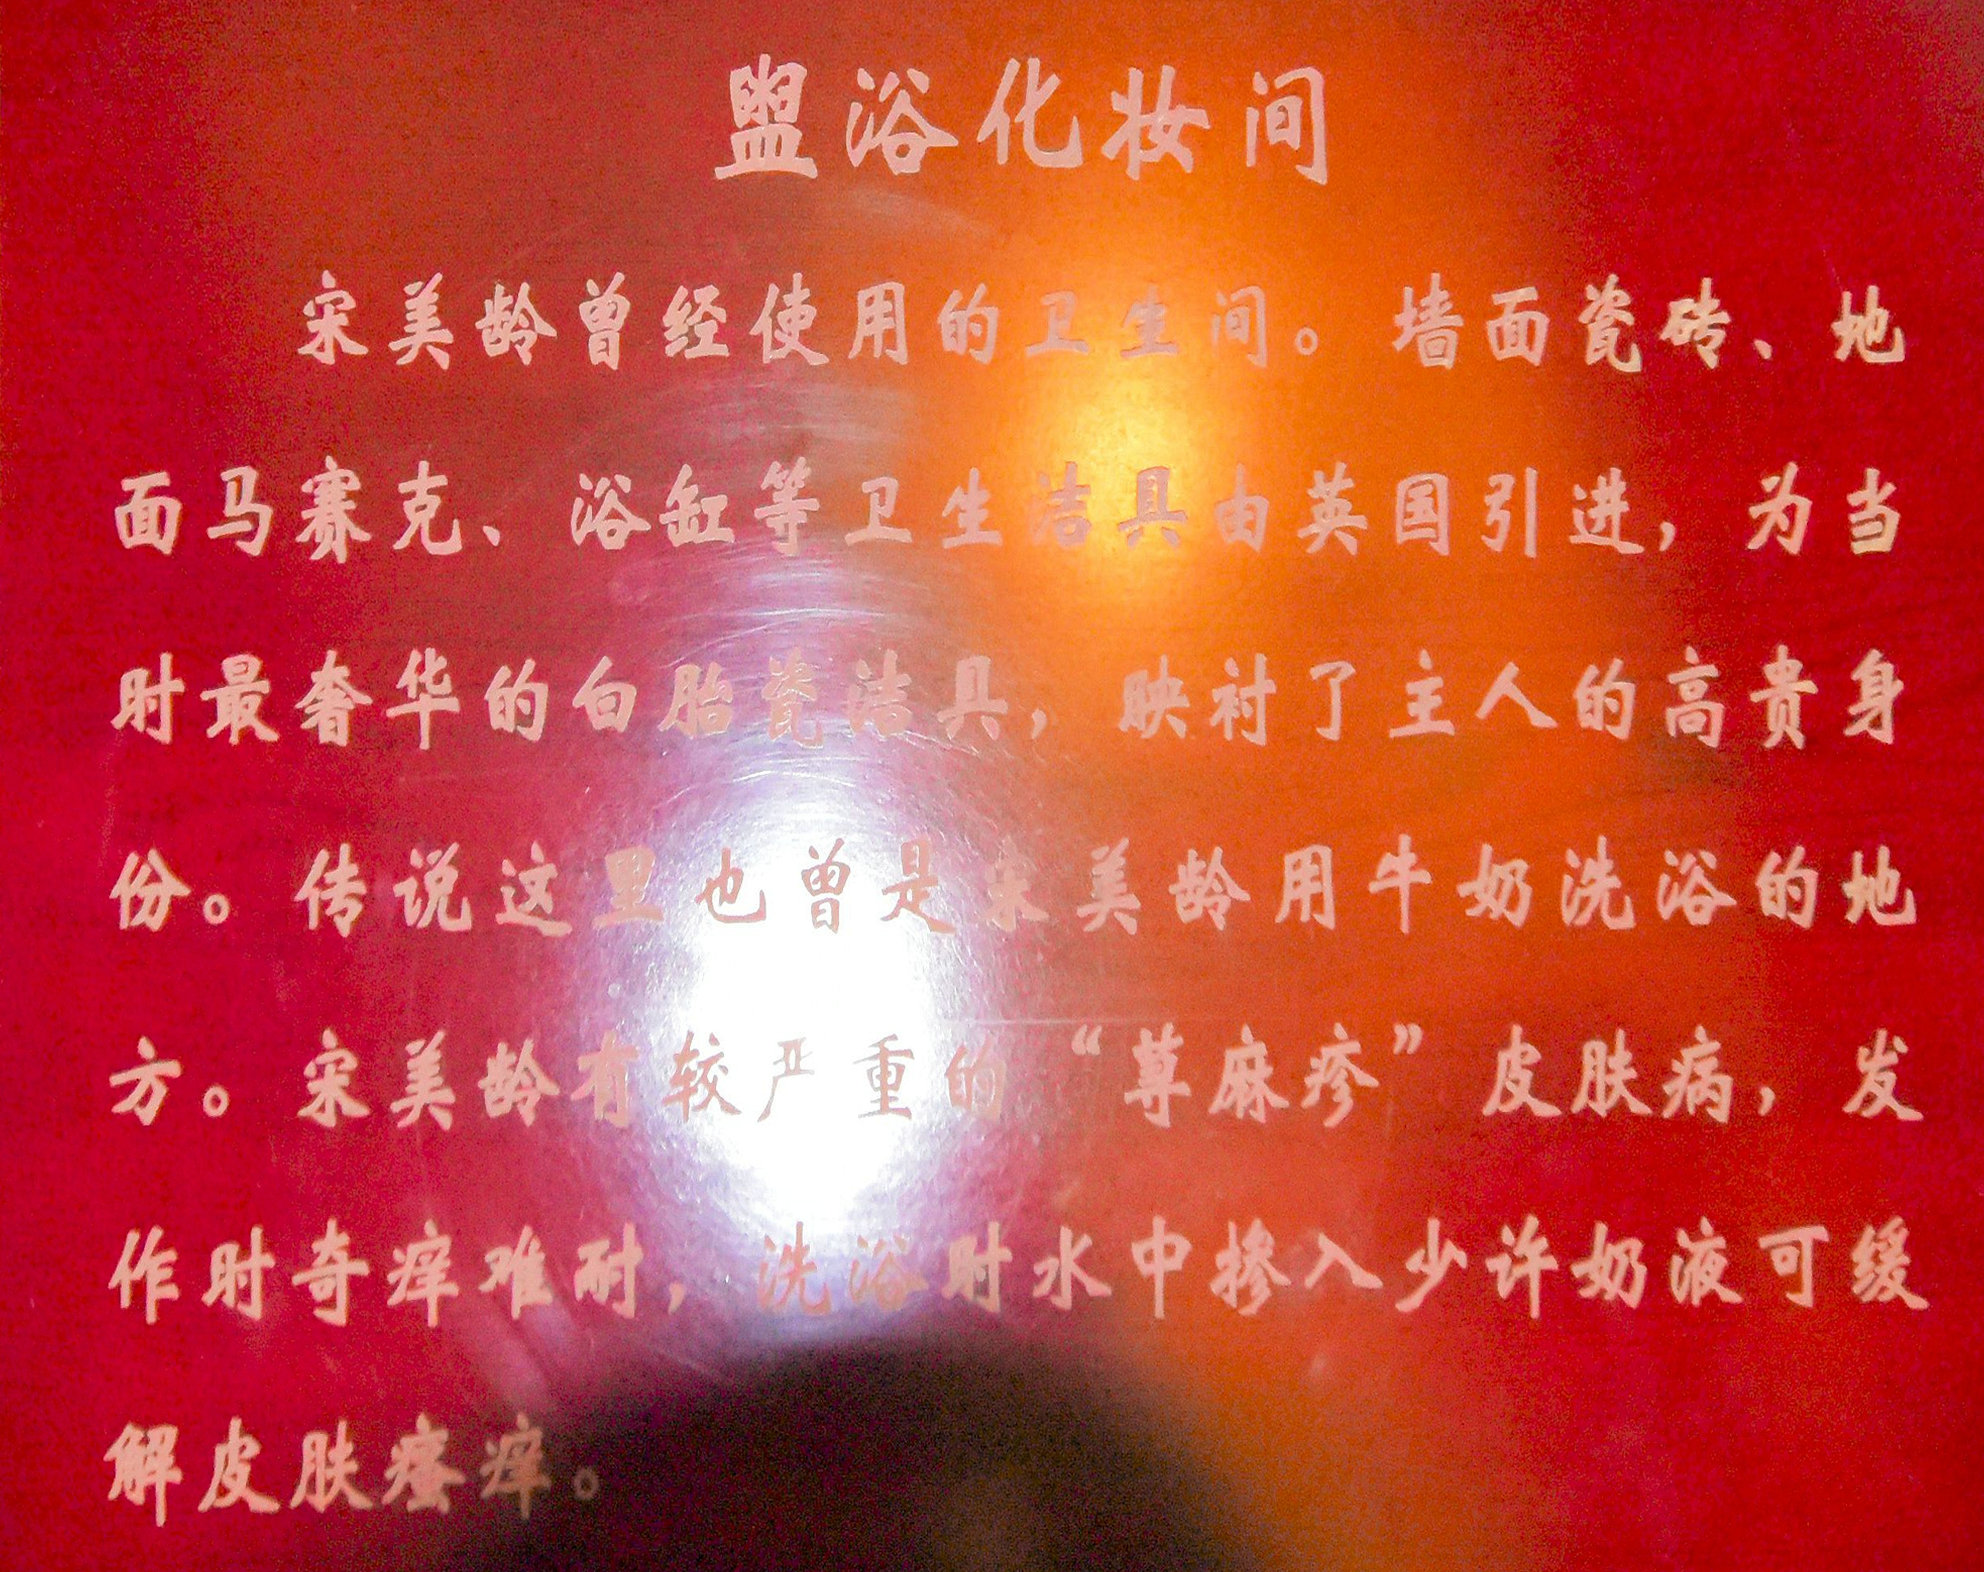 盥浴化妆间
宋美龄曾经使用的卫生间。墙面瓷砖、地
面马赛克、浴缸等卫生洁具由英国引进，为当
时最奢华的白胎瓷洁具，映衬了主人的高贵身
份。传说这里也曾是宋美龄用牛奶洗浴的地
方。宋美龄有较严重的“荨麻疹”皮肤病，发
作时奇痒难耐，洗浴时水中掺入少许奶液可缓
解皮肤瘙痒。